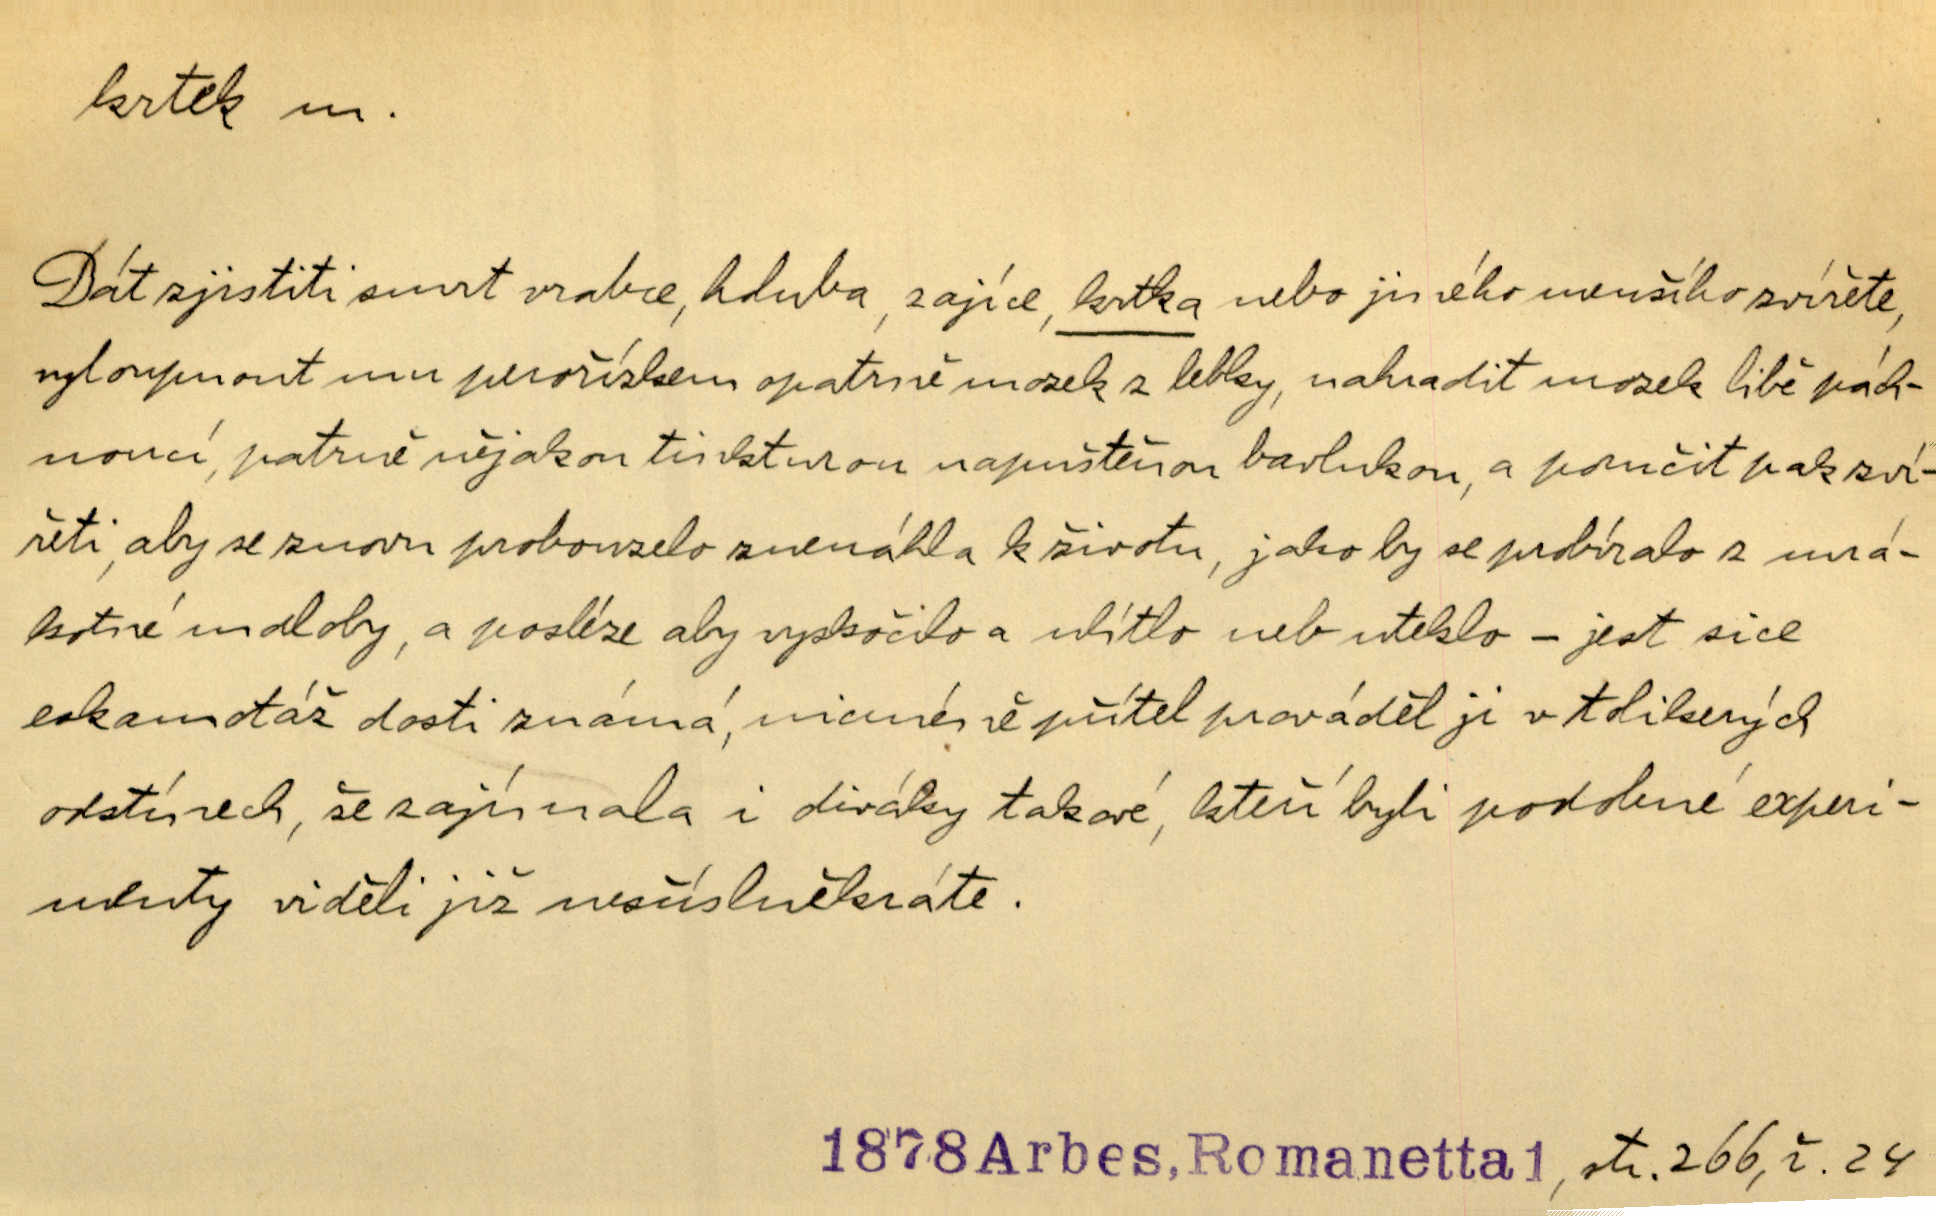 krtek m.
Dát zjistiti smrt vrabce, holuba, zajíce, krtka nebo jiného menšího zvířete,
vyloupnout mu perořízkem opatrně mozek z lebky, nahradit mozek libě pách-
noucí, patrně nějakou tinkturou napuštěnou bavlnkou, a poručit pak zví-
řeti, aby se znovu probouzelo znenáhla k životu, jako by se probíralo z mrá-
kotné mdloby, a posléze aby vyskočilo a ulítlo neb uteklo – jest sice
eskamotáž dosti známá, nicméně přítel prováděl ji v tolikerých
odstínech, že zajímala i diváky takové, kteří byli podobné experi-
menty viděli již nesčíslněkráte.
1878 Arbes, Romanetta 1, str. 266, ř. 24